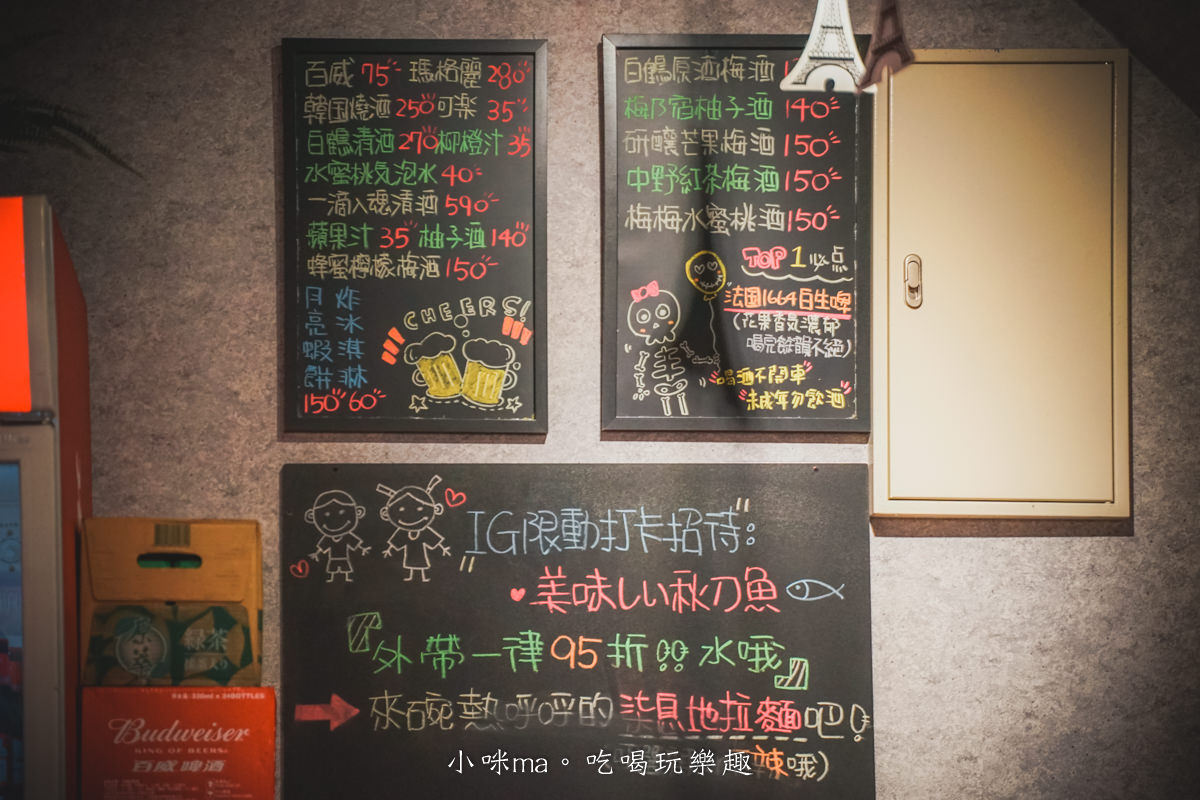 百威 75 瑪格麗 280
韓国燒酒 250 可楽 35
白鶴清酒 270 柳橙汁 35
水蜜桃気泡水 40
一滴入魂清酒 590
蘋果汁 35 柚子酒 140
蜂蜜檸檬梅酒 150
月亮蝦餅 150
炸冰淇淋 60
CHEERS!
白鶴原酒梅酒
梅乃宿柚子酒 140
研釀芒果梅酒 150
中野紅茶梅酒 150
梅梅水蜜桃酒 150
TOP 1 必点
法国1664白生啤
(花果香気濃郁
喝完餘韻不絕)
喝酒不開車
未成年勿飲酒
IG限動打卡招待:
美味しい秋刀魚
外帶一律95折!! 水哦
來碗熱呼呼的 拉麵吧!
辣哦)
綠茶
330ml x 24BOTTLES
Budweiser
KING OF BEERS
百威啤酒
小咪ma。吃喝玩樂趣